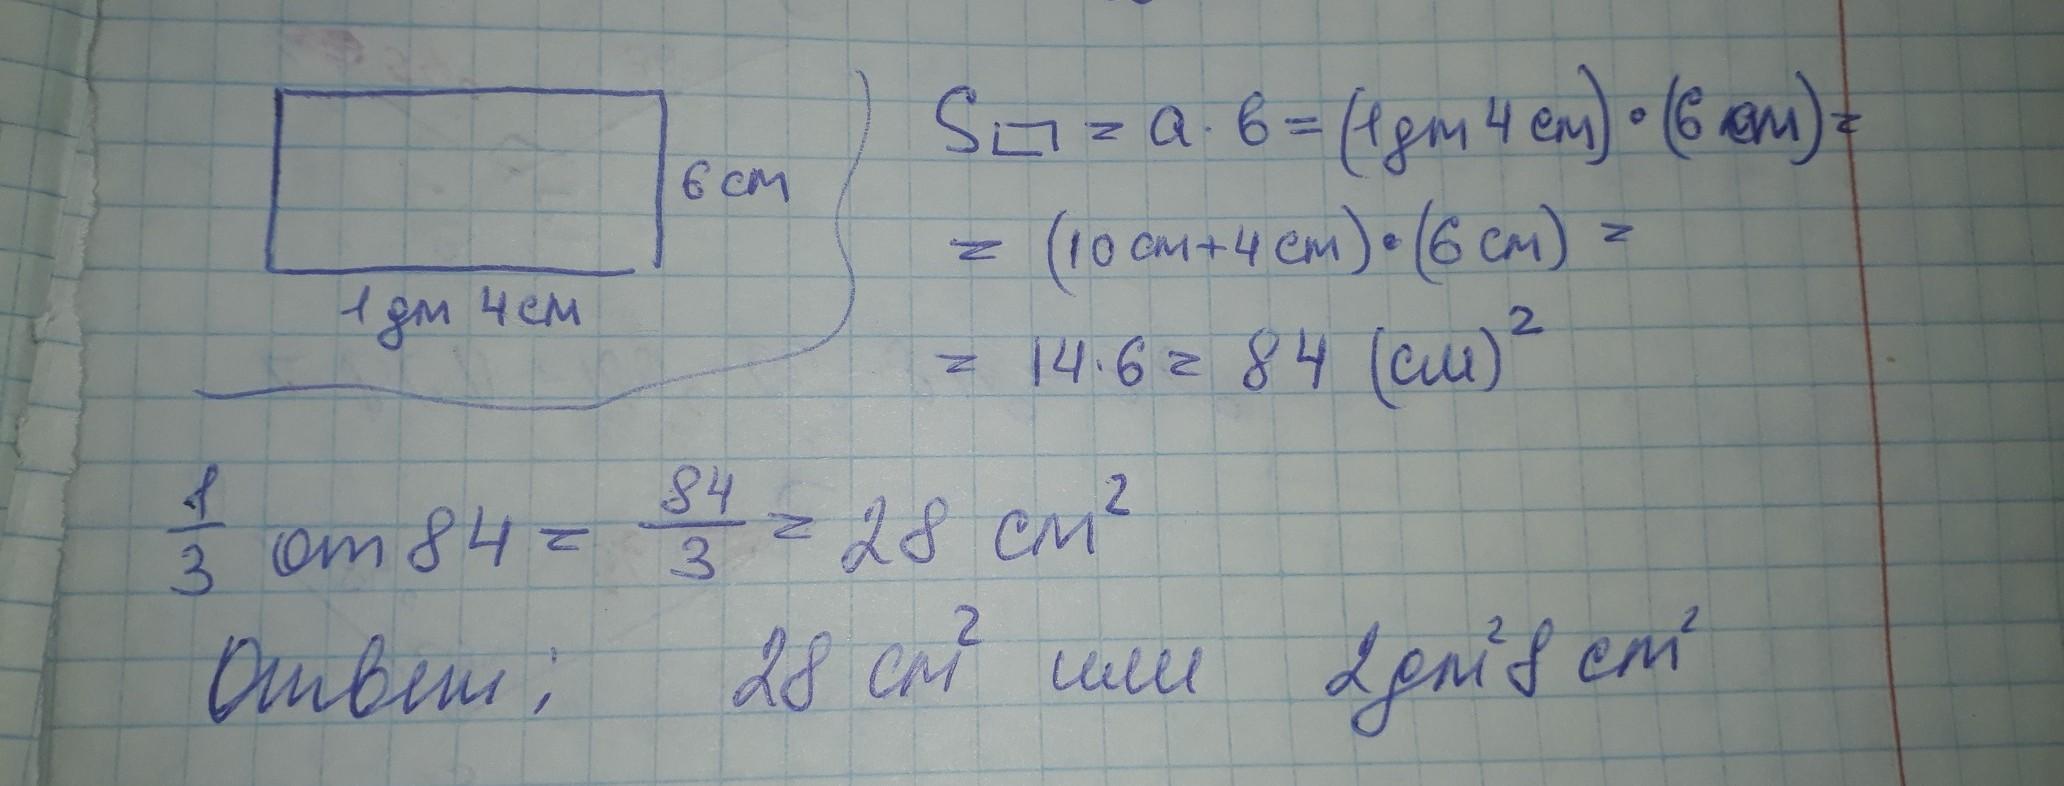 6 см
1 дм 4 см
S▭ = a · b = (1 дм 4 см) · (6 см) =
= (10 см + 4 см) · (6 см) =
= 14 · 6 = 84 (см)²
1/3 от 84 = 84/3 = 28 см²
Ответ: 28 см² или 2 дм² 8 см²